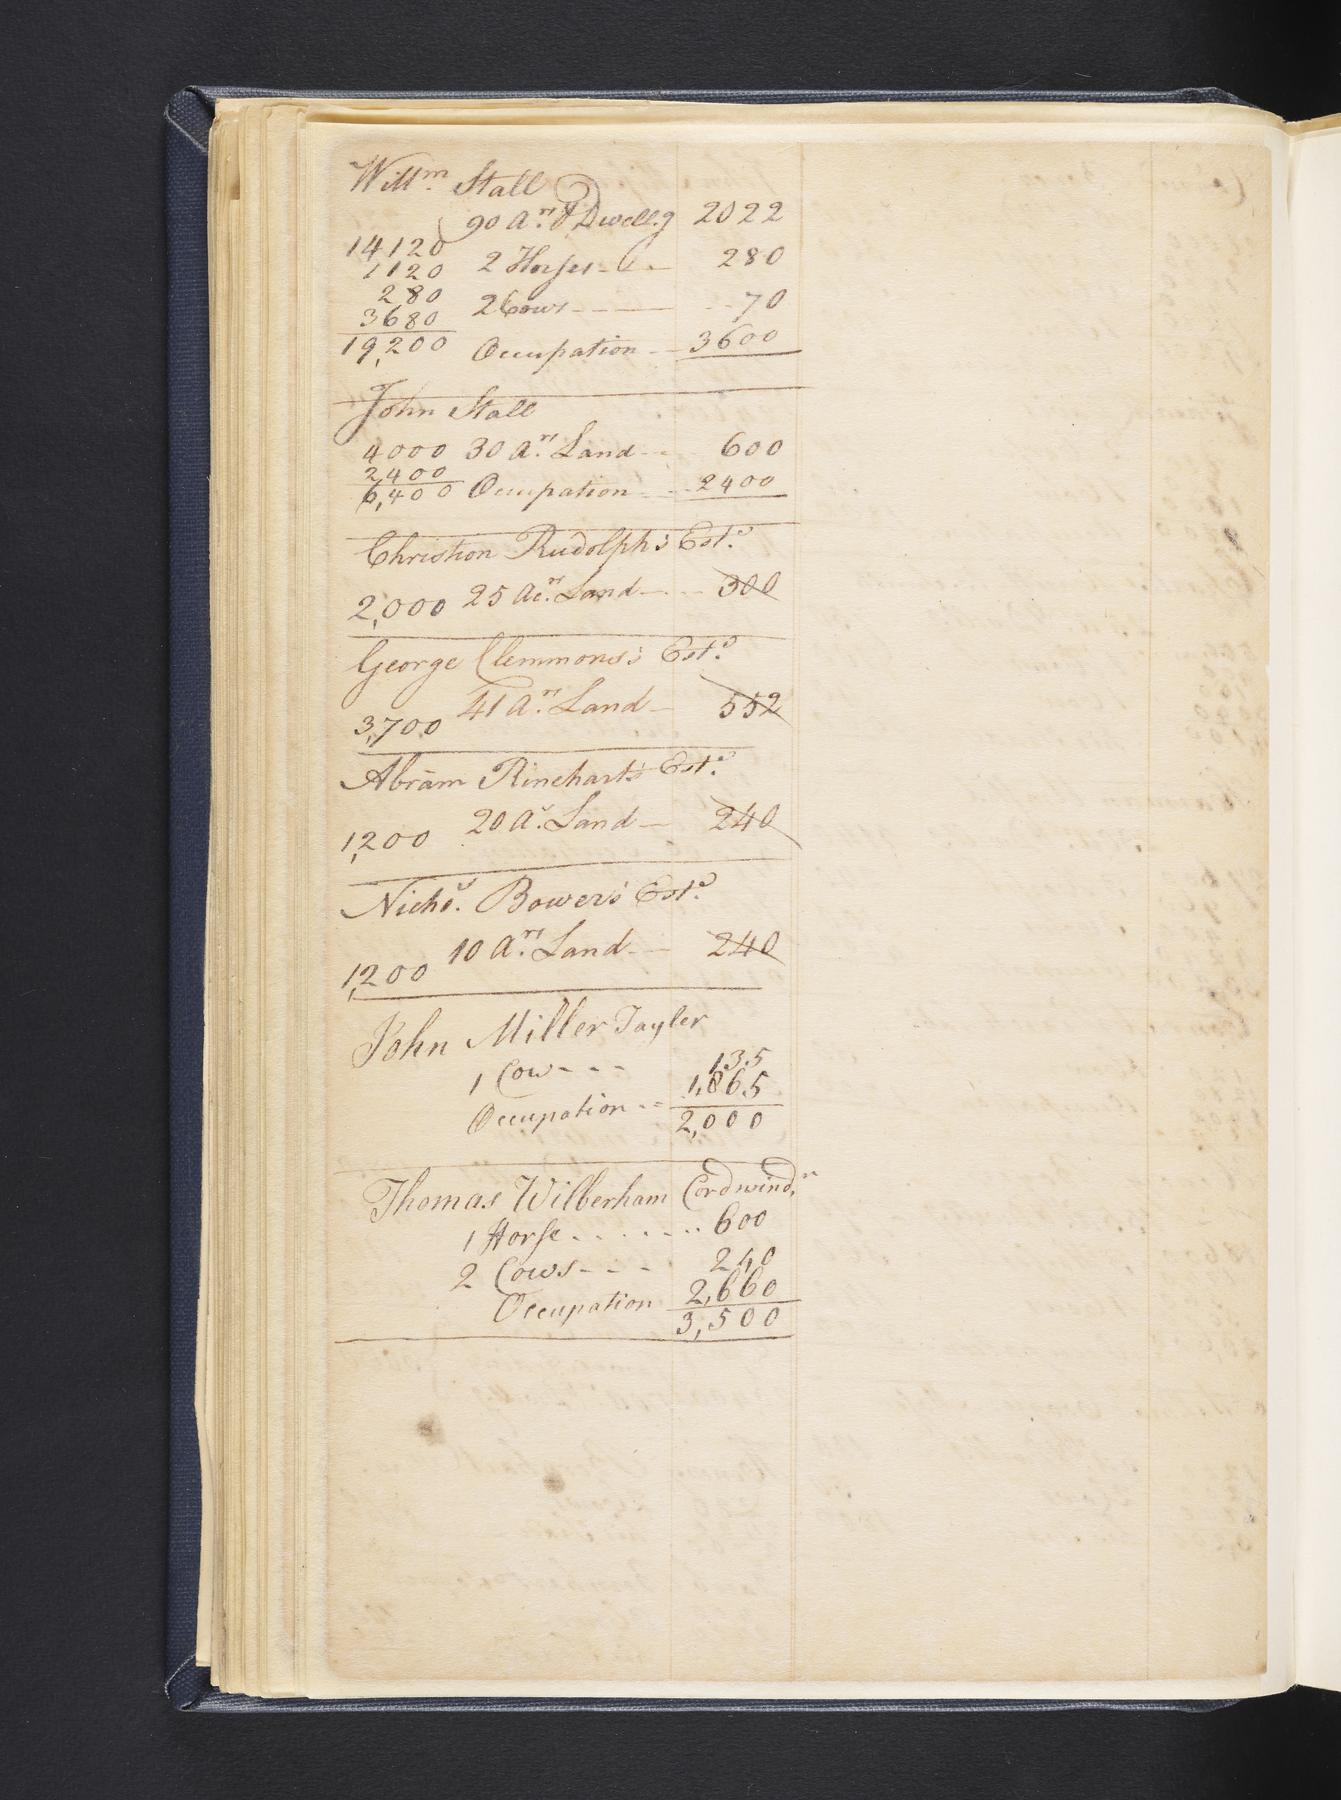 Willm. Stall
90 Ars. & Dwellg 2022
14120
1120 2 Horses 280
280
3680 2 Cows 70
19,200 Occupation 3600
John Stall
4000 30 Ars. Land 600
2400
6,400 Occupation 2400
Christion Rudolph's Este.
2,000 25 Acrs. Land 300
George Clemmons's Este.
3,700 41 Ars. Land 552
Abram Rinehart's Este.
1,200 20 As. Land 240
Nichs. Bower's Este.
1,200 10 Ars. Land 240
John Miller Tayler
1 Cow 135
Occupation 1,865
2,000
Thomas Wilberham Cordwindr.
1 Horse 600
2 Cows 240
Occupation 2,660
3,500